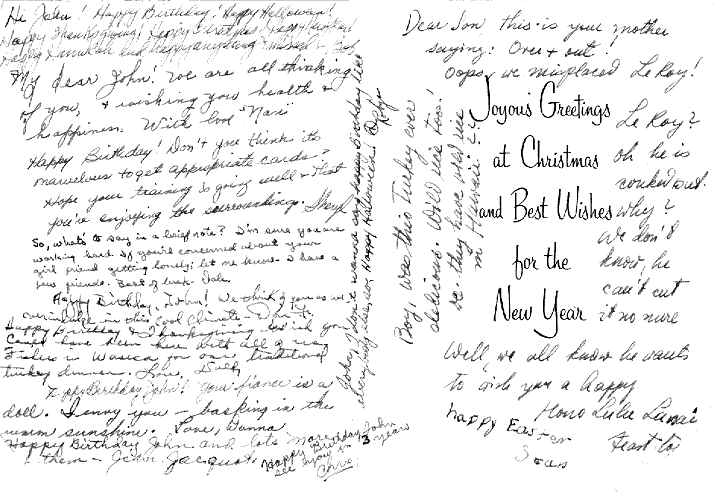 Hi John! Happy Birthday! Happy Halloween!
Happy Thanksgiving! Happy Christmas! Happy Hanukah!
Happy and happy anything I missed - Bob
My dear John! We are all thinking
of you, & wishing you health &
happiness. With love "Nan"
Happy Birthday! Don't you think its
marvelous to get appropriate cards?
Hope your training is going well & that
you're enjoying the surroundings. Sheryl
So, what's to say in a brief note? I'm sure you are
working hard. If you're concerned about your
girl friend getting lonely; let me know - I have a
few friends. Best of luck. Dale
Happy Birthday, John! We think of you as we
in this cool climate -
Happy Birthday & Thanksgiving. Wish you
could have been here with all of us
in for our traditional
turkey dinner. Love,
Happy Birthday John! Your fiance is a
doll. I envy you - basking in the
warm sunshine. Love, Donna
Happy Birthday John and lots more
of them - Jean Jacques
Happy Birthday John
see you in 3 years
Chris
John, I don't wanna say happy Birthday like
everybody else, so Happy Halloween! Robyn
Boy, was this Turkey ever
delicious. Wild rice too!
Do they have wild rice
in Hawaii??
Dear Son this is your mother
saying: Over & out!
Oops, we misplaced LeRoy!
Le Roy?
oh he is
conked out.
Why?
We don't
know, he
can't cut
it no more
Joyous Greetings
at Christmas
and Best Wishes
for the
New Year
Well, we all know he wants
to wish you a happy
Hono Lulu Lunai
feast to
Happy Easter
Sean